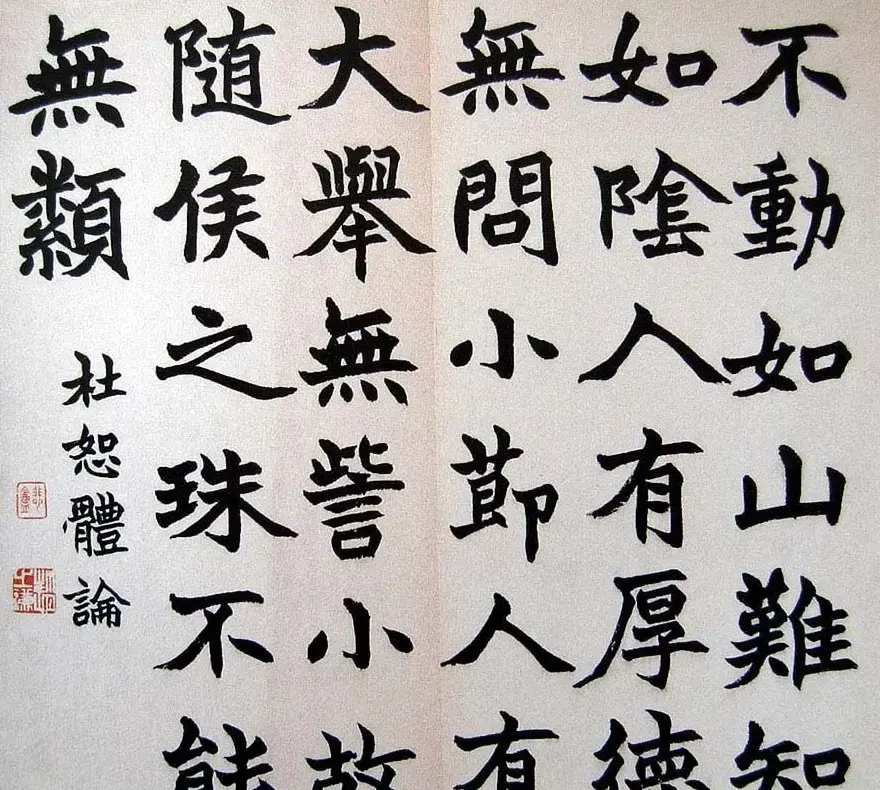 不動如山難知
如隂人有厚德
無問小莭人有
大舉無訾小故
随侯之珠不能
無纇
杜恕體論